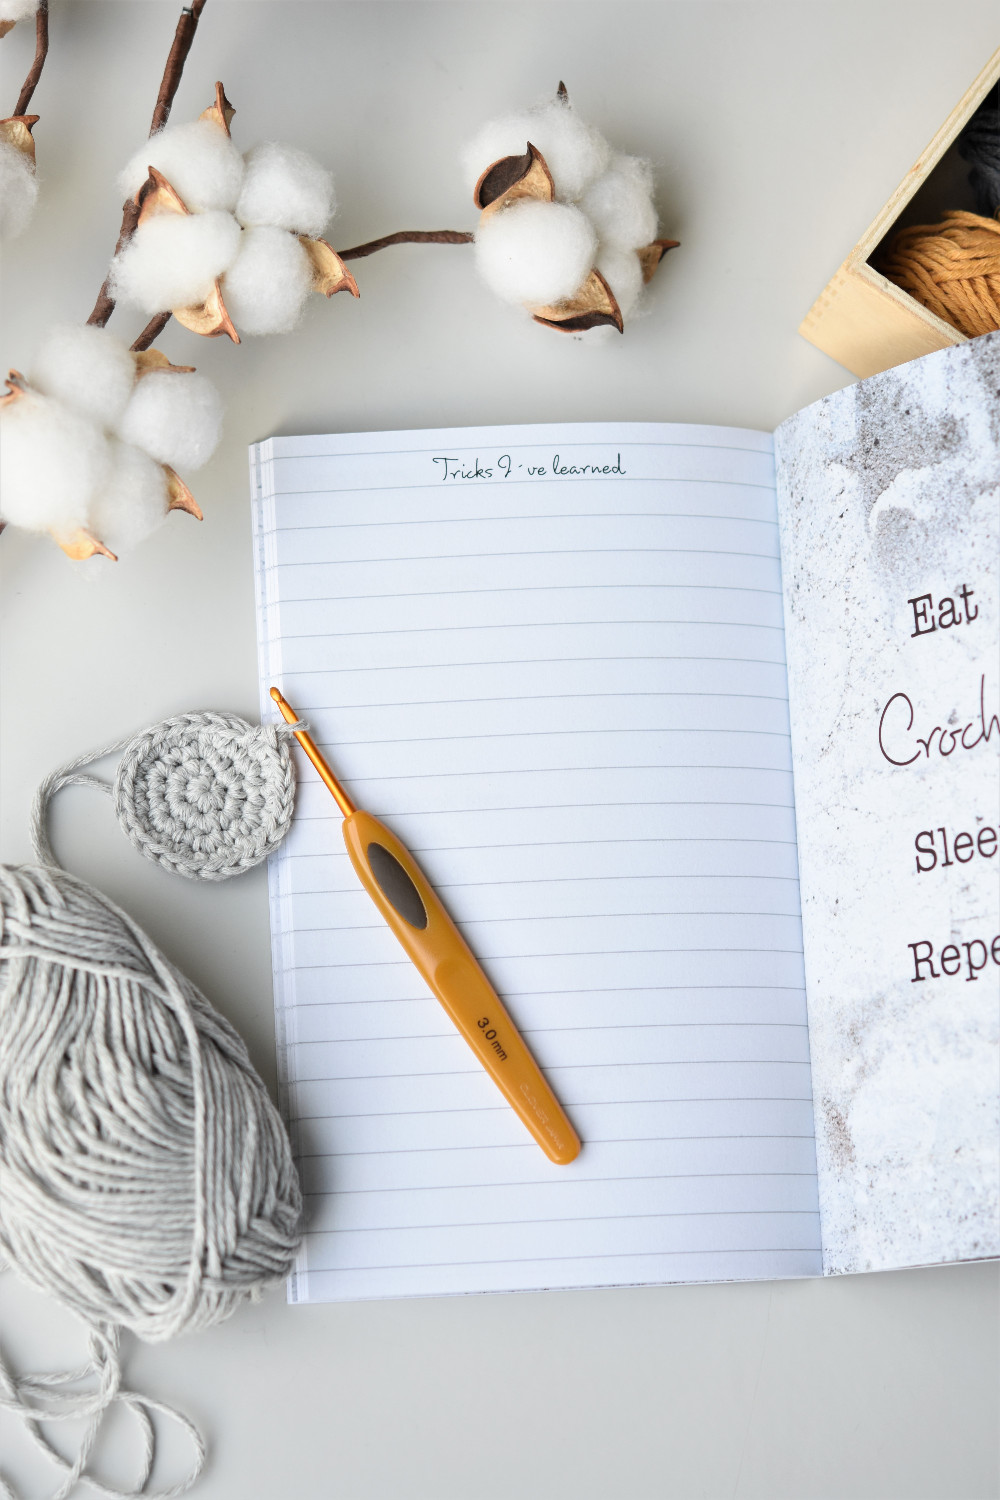 Tricks I've learned
Eat
Croch
Slee
Repe
3.0 mm